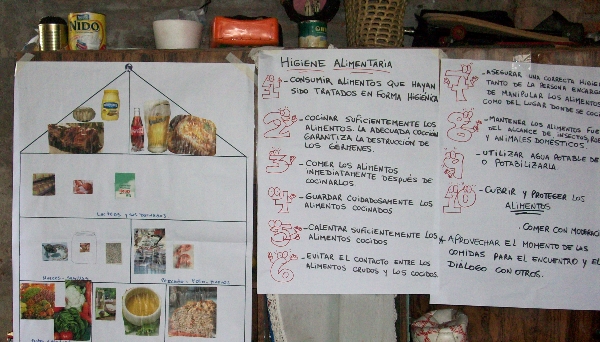 NIDO
LACTEOS Y SUS DERIVADOS
HIGIENE ALIMENTARIA
1 -CONSUMIR ALIMENTOS QUE HAYAN
SIDO TRATADOS EN FORMA HIGIENICA
2 -COCINAR SUFICIENTEMENTE LOS
ALIMENTOS. LA ADECUADA COCCIÓN
GARANTIZA LA DESTRUCCION DE
LOS GÉRMENES.
3 -COMER LOS ALIMENTOS
INMEDIATAMENTE DESPUÉS DE
COCINARLOS
4 -GUARDAR CUIDADOSAMENTE LOS
ALIMENTOS COCINADOS
5 -CALENTAR SUFICIENTEMENTE LOS
ALIMENTOS COCIDOS
6 -EVITAR EL CONTACTO ENTRE LOS
ALIMENTOS CRUDOS Y LOS COCIDOS.
7 -ASEGURAR UNA CORRECTA HIGIE
TANTO DE LA PERSONA ENCARG
DE MANIPULAR LOS ALIMENTOS
COMO DEL LUGAR DONDE SE COCI
8 -MANTENER LOS ALIMENTOS FUE
DEL ALCANCE DE INSECTOS, RO
Y ANIMALES DOMÉSTICOS.
9 -UTILIZAR AGUA POTABLE
O POTABILIZARLA
10 -CUBRIR Y PROTEGER LOS
ALIMENTOS
-COMER CON MODERAC
* APROVECHAR EL MOMENTO DE LAS
COMIDAS PARA EL ENCUENTRO Y EL
DIALOGO CON OTROS.